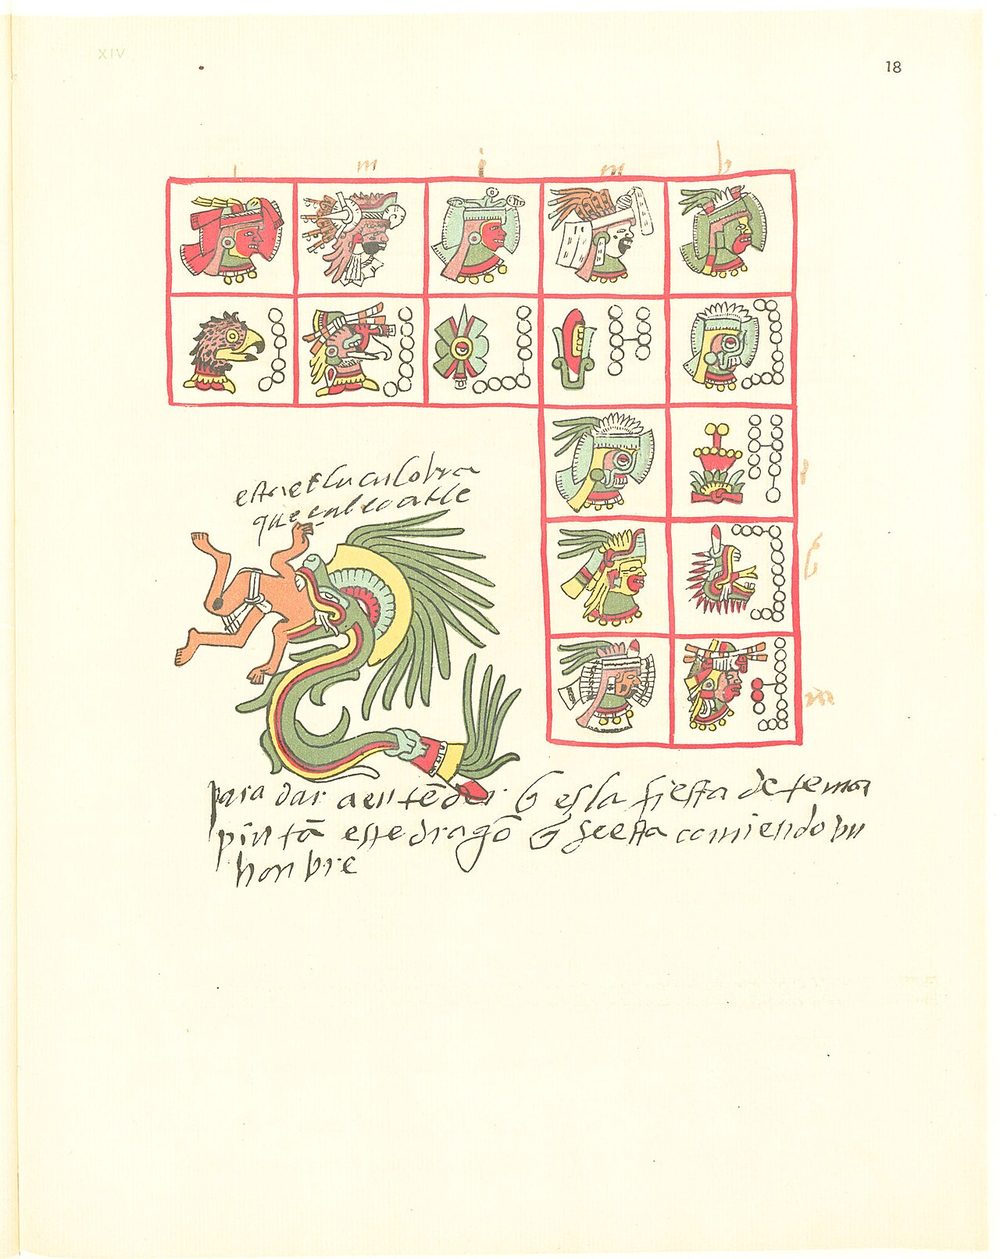 XIV
18
i m i m b
este es la culobra
quetzalcoatle
i
b
m
para dar a entēder q̃ es la fiesta de temor
pintā este dragō q̃ se esta comiendo un
honbre